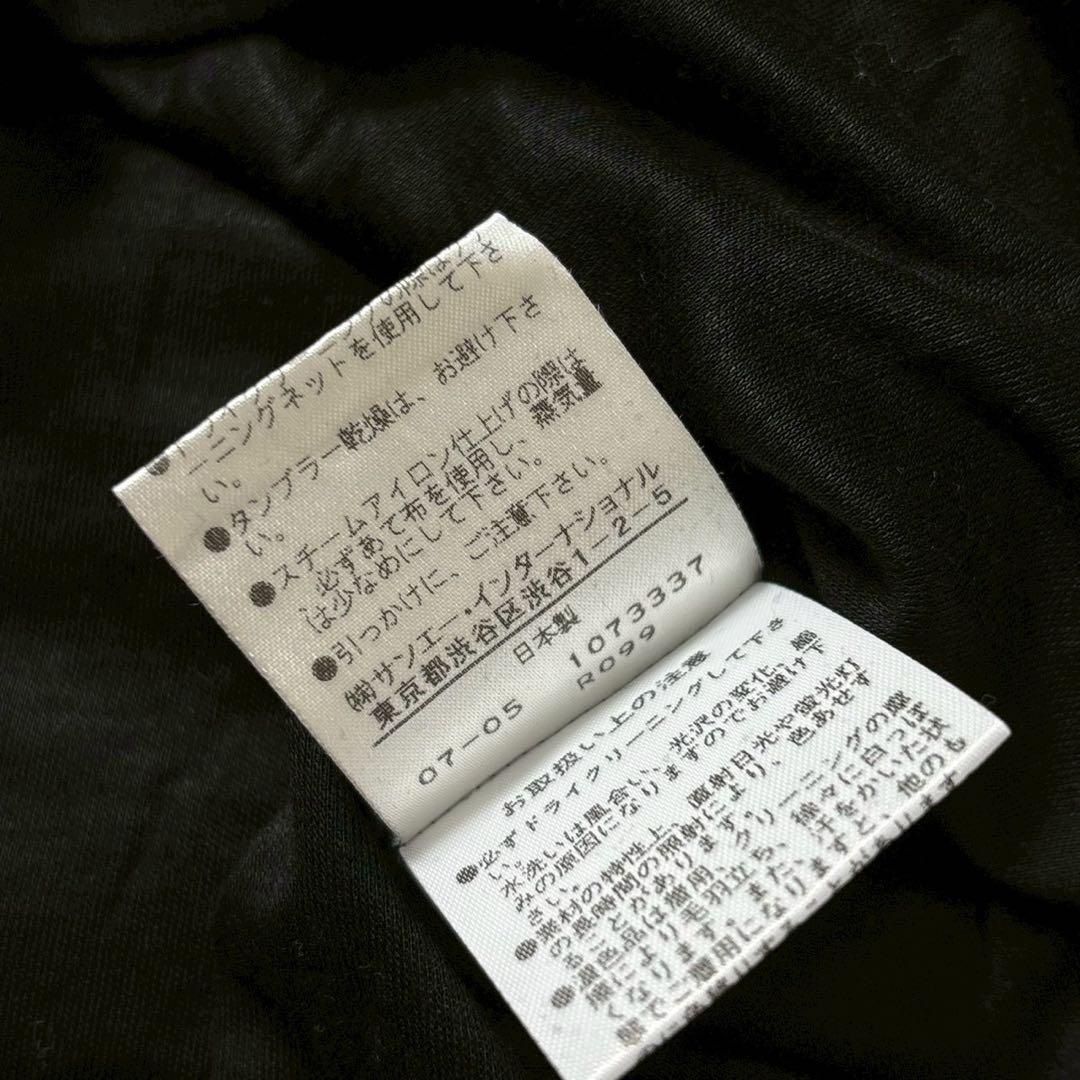 ●ドライクリーニングの際はクリ
ーニングネットを使用して下さ
い。
●タンブラー乾燥は、お避け下さ
い。
●スチームアイロン仕上げの際は
必ずあて布を使用し、蒸気量
は少なめにして下さい。
●引っかけに、ご注意下さい。
㈱サンエー・インターナショナル
東京都渋谷区渋谷1-2-5
日本製
07-05 1073337
R099
お取扱い上の注意
●必ずドライクリーニングして下さ
い。
水洗いは風合い、光沢の変化、縮
みの原因になりますのでお避け下
さい。
●素材の特性上、直射日光や蛍光灯
の長時間の照射により、色あせす
ることがあります。
●濃色品は着用、クリーニングの摩
擦により毛羽立ち、徐々に白っぽ
くなります。また、汗をかいた状
態でご着用になりますと、他のも